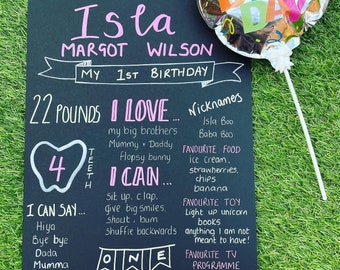 Isla
MARGOT WILSON
My 1st BIRTHDAY
22 POUNDS
4
TEETH
I CAN SAY...
Hiya
Bye bye
Dada
Mumma
I LOVE...
my big brothers
Mummy + Daddy
Flopsy bunny
I CAN...
sit up. clap.
give big smiles.
shout. bum
shuffle backwards
ONE
Nicknames
Isla Boo
Baba Boo
FAVOURITE FOOD
Ice cream.
strawberries.
chips
banana
FAVOURITE TOY
Light up unicorn
books
anything I am not
meant to have!
FAVOURITE TV
PROGRAMME